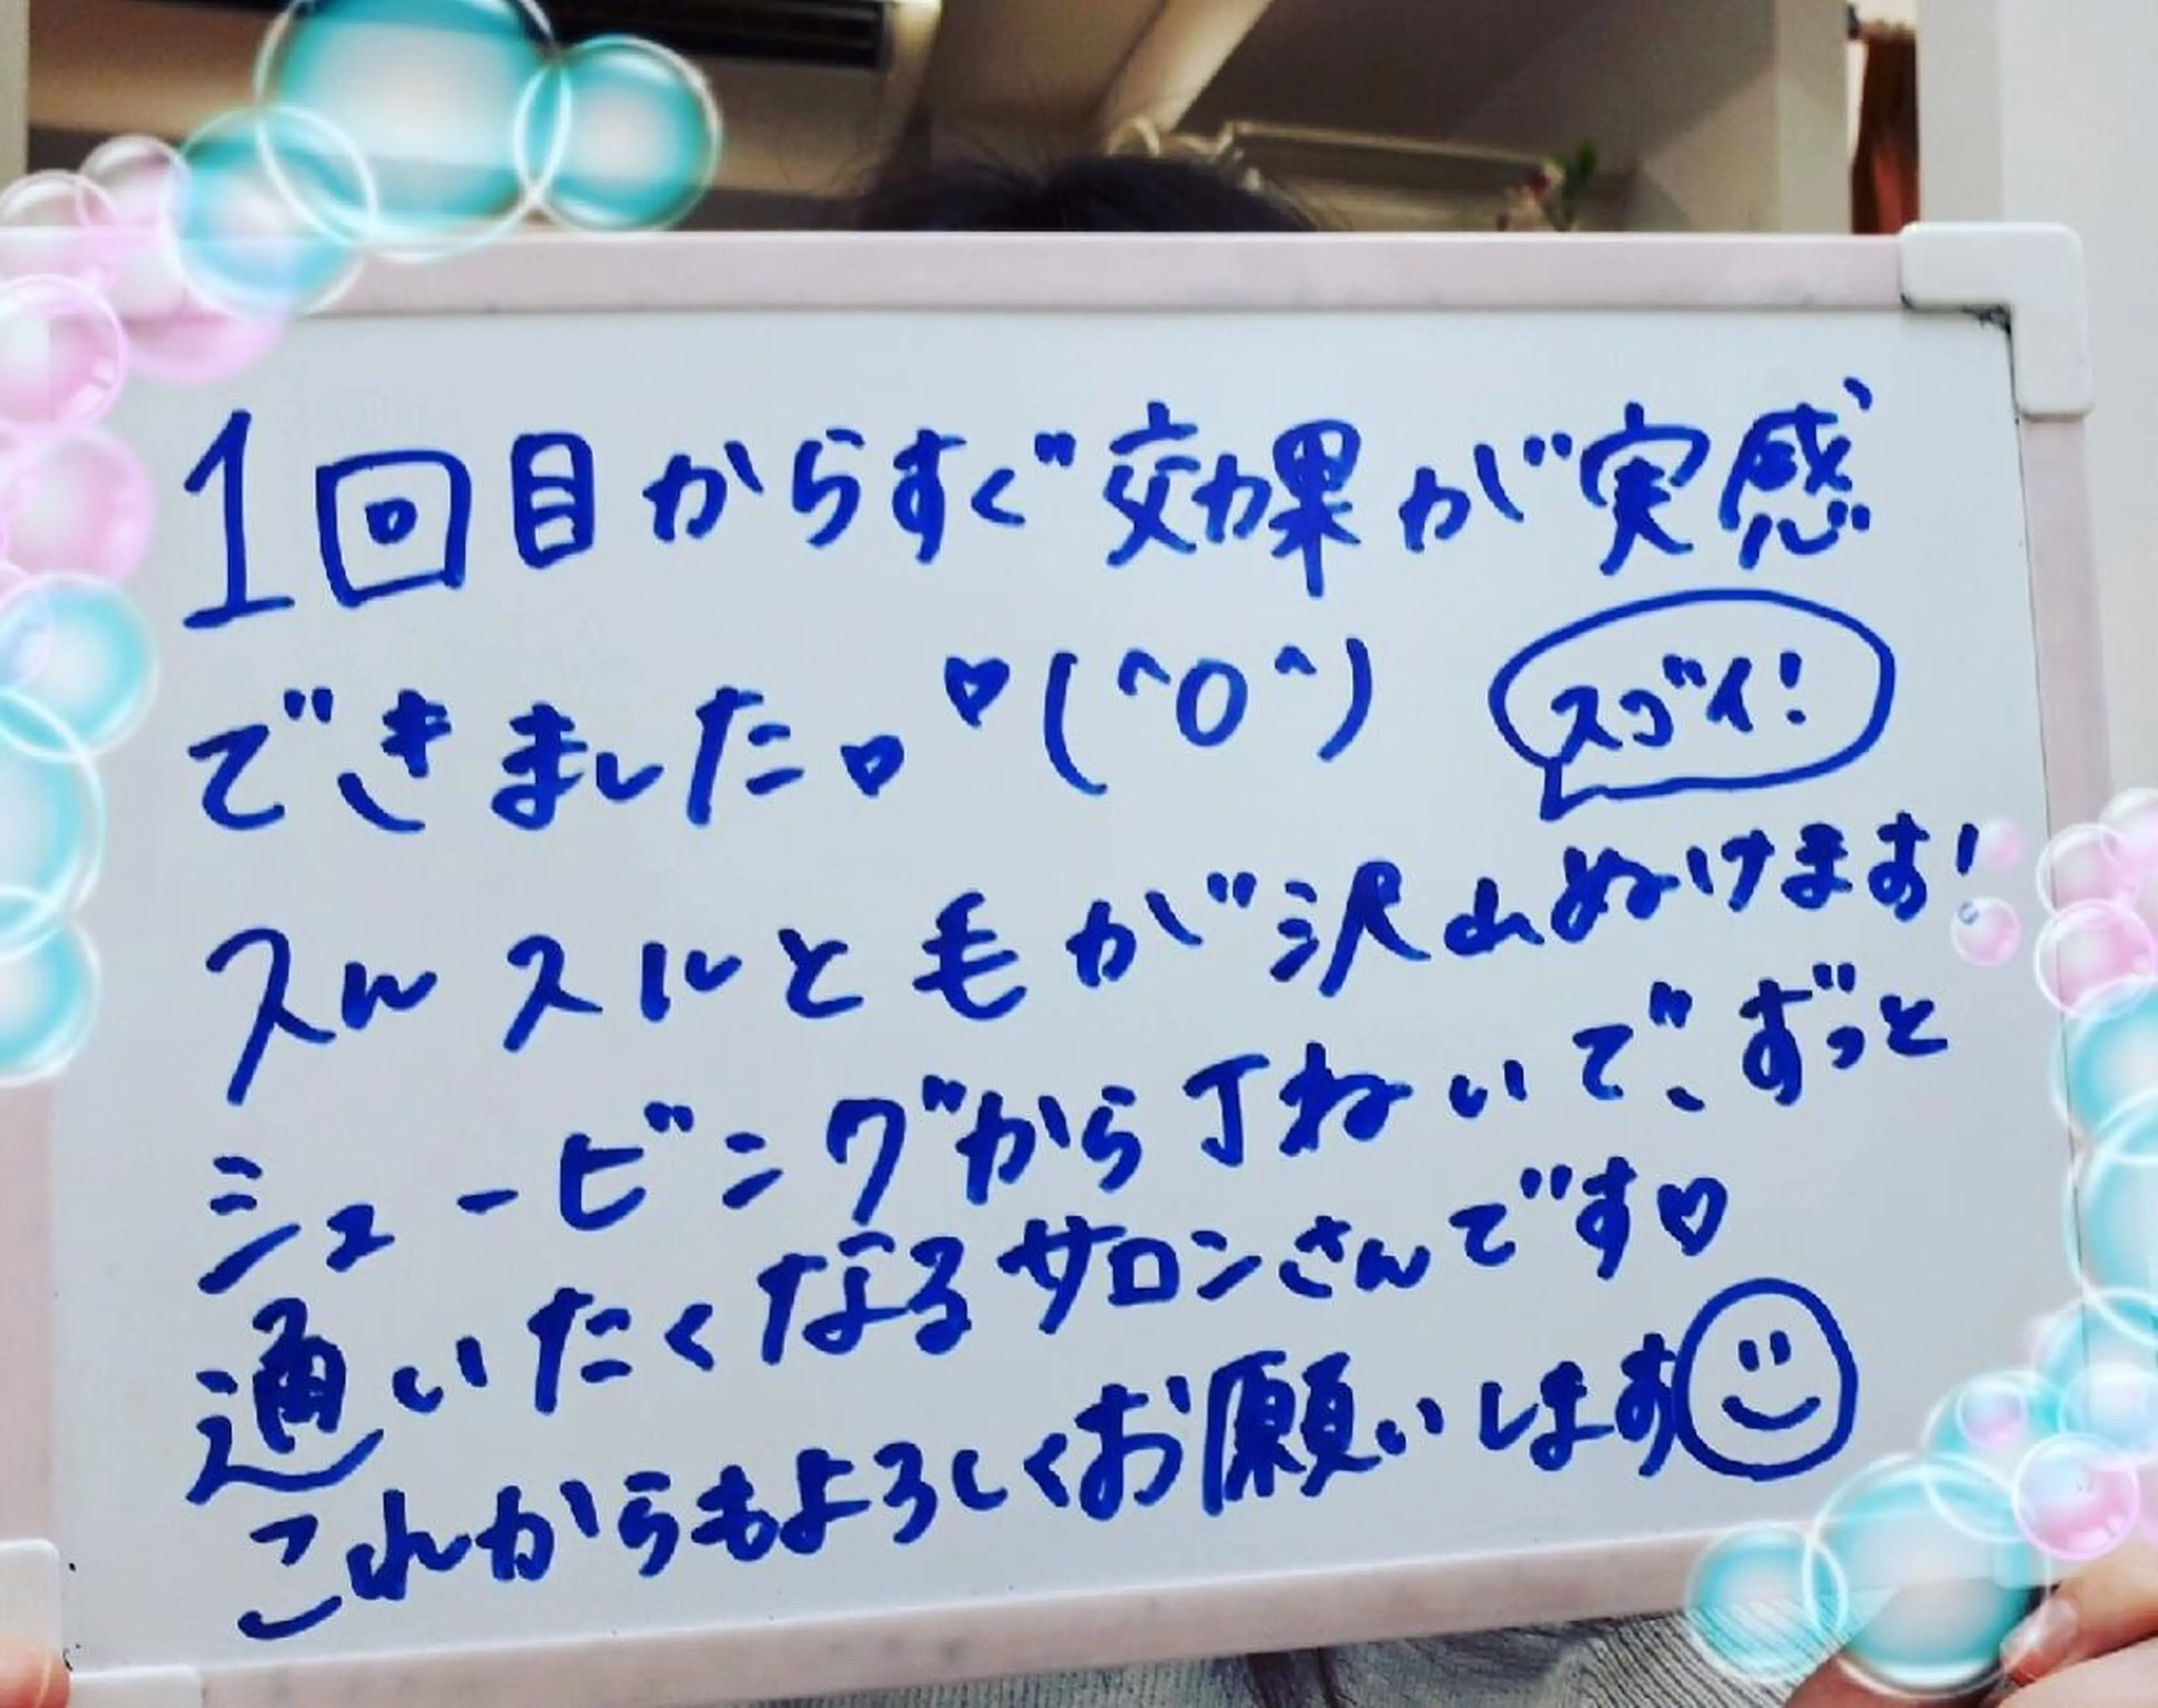 1回目からすぐ効果が実感
できました♡♡(^O^)
スゴイ!
スルスルと毛が沢山ぬけます!
シュービングから丁ねいで、ずっと
通いたくなるサロンさんです♡
これからもよろしくお願いします☺